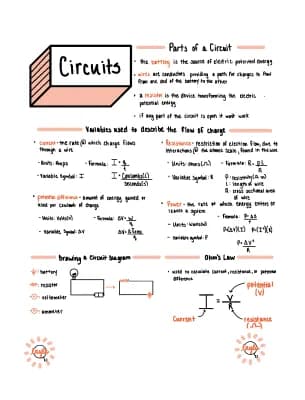 Circuits
Parts of a Circuit
• the battery is the source of electric potential energy
• wires act conductors providing a path for charges to flow
from one end of the battery to the other
• a resistor is the device transforming the electric
potential energy
• if any part of the circuit is open it wont work
Variables used to describe the flow of charge
• current - the rate @ which charge flows
through a wire
- Units: Amps
- Formula: I = q/t
- Variable Symbol: I
I = Coulomb(s)/Second(s)
• potential difference - amount of energy gained or
used per coulomb of charge
- Units: Volts(V)
- Formula: ΔV = W/q
- Variable Symbol: ΔV
• Resistance - restriction of electron flow, due to
interactions @ the atomic scale, found in the wire
- Units: ohms (Ω)
- Formula: R = ρL/A
- Variable Symbol: R
ρ = resistivity (Ω·m)
L = length of wire
A = cross sectional area
of wire
• Power - the rate at which energy enters or
leaves a system
- Formula:
- Units: Watts(W)
- Variable symbol: P
P = ΔV²/R
Drawing a Circuit Diagram
battery
resistor
voltmeter
ammeter
Ohm's Law
• used to calculate current, resistance, or potential
difference
potential
(V)
I = V/R
Current
resistance
(Ω)